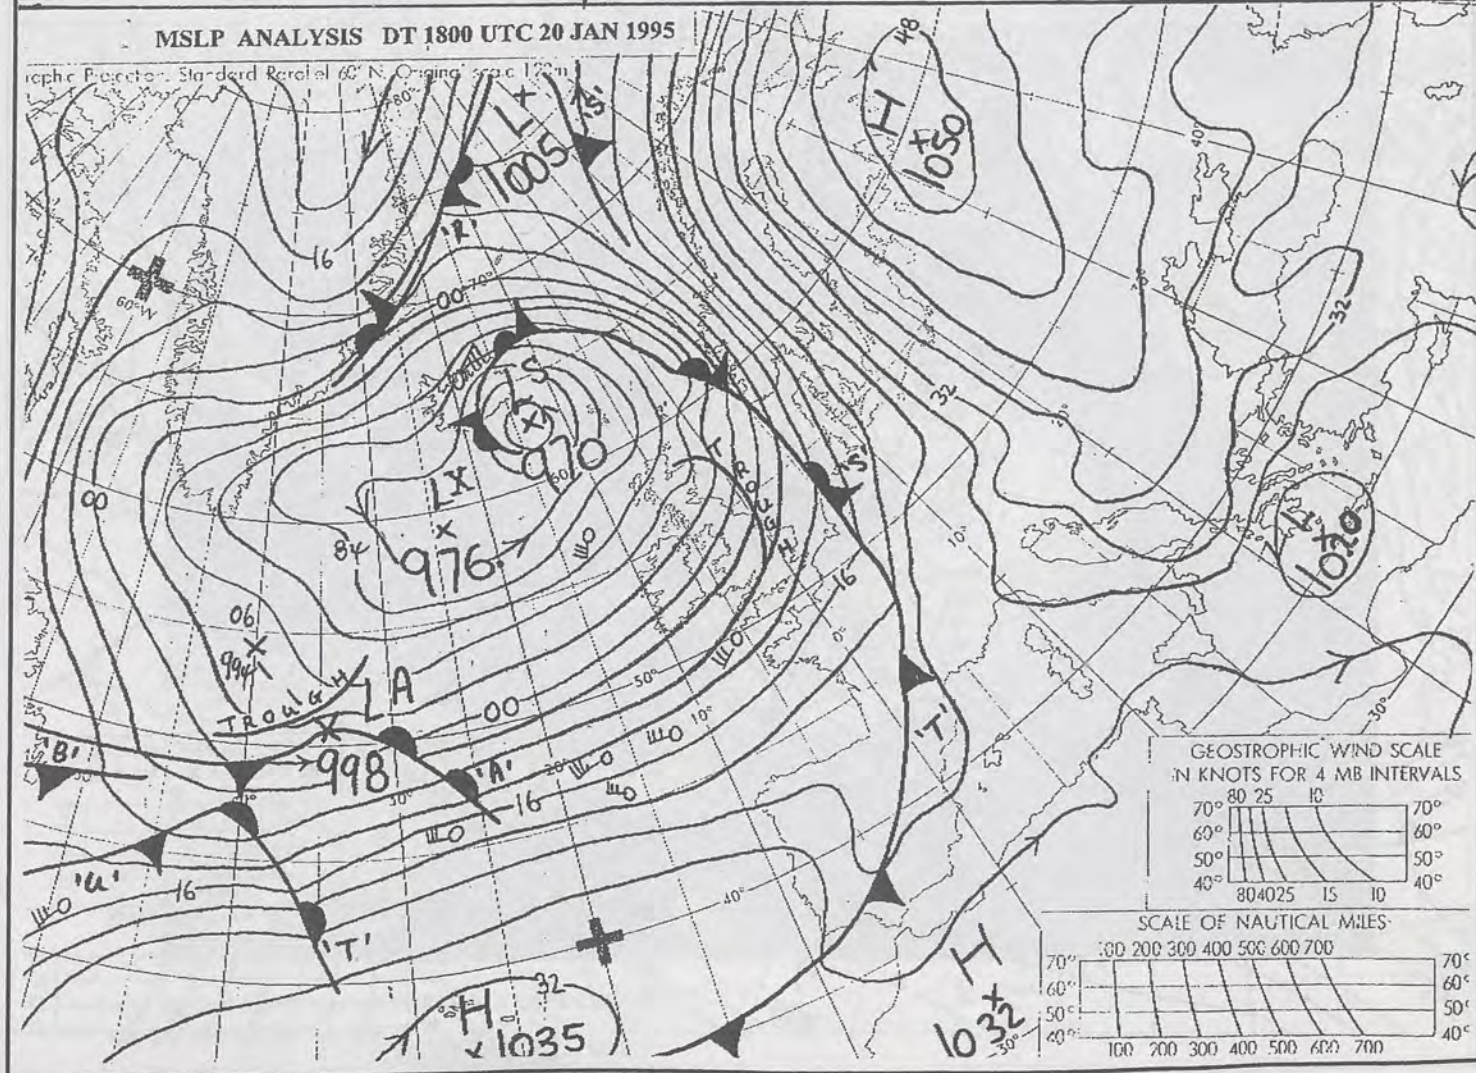 MSLP ANALYSIS DT 1800 UTC 20 JAN 1995
Projection. Standard Parallel 60° N. Original scale
80°
L
'S'
1005
48
H
1050
40°
'R'
16
60°W
00
70°
32
32
S
970
L X
976
84
60
TROUGH
'S'
10°
L
1020
00
06
994
TROUGH
L A
998
'B'
'A'
00
50°
10°
0°
16
20°
30°
16
'T'
30°
'U'
16
'T'
40°
H
32
1035
H
1032
30°
GEOSTROPHIC WIND SCALE
IN KNOTS FOR 4 MB INTERVALS
80 25 10
70° 70°
60° 60°
50° 50°
40° 40°
80 40 25 15 10
SCALE OF NAUTICAL MILES
100 200 300 400 500 600 700
70° 70°
60° 60°
50° 50°
40° 40°
100 200 300 400 500 600 700